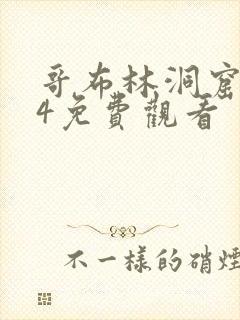 哥布林洞窟
4免費觀看
不一樣的硝煙